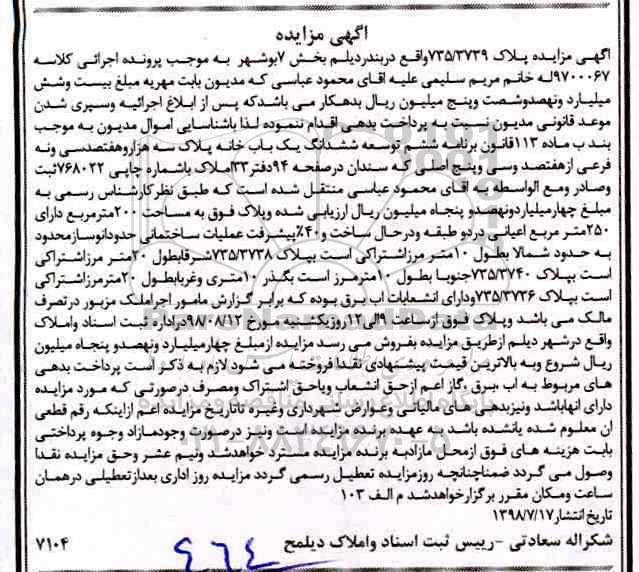 آگهی مزایده
آگهی مزایده پلاک ۷۳۵/۳۷۳۹واقع دربندردیلم بخش ۷بوشهر به موجب پرونده اجرائی کلاسه
۹۷۰۰۰۶۷له خانم مریم سلیمی علیه اقای محمود عباسی که مدیون بابت مهریه مبلغ بیست وشش
میلیارد ونهصدوشصت وپنج میلیون ریال بدهکار می باشدکه پس از ابلاغ اجرائیه وسپری شدن
موعد قانونی مدیون نسبت به پرداخت بدهی اقدام ننموده لذا باشناسایی اموال مدیون به موجب
بند ب ماده ۱۱۳قانون برنامه ششم توسعه ششدانگ یک باب خانه پلاک سه هزاروهفتصدسی ونه
فرعی ازهفتصد وسی وپنج اصلی که سندان درصفحه ۹۴دفتر۳۳املاک باشماره چاپی ۷۶۸۰۲۲ثبت
وصادر ومع الواسطه به اقای محمود عباسی منتقل شده است که طبق نظرکارشناس رسمی به
مبلغ چهارمیلیاردونهصدو پنجاه میلیون ریال ارزیابی شده وپلاک فوق به مساحت ۲۰۰مترمربع دارای
۲۵۰متر مربع اعیانی دردو طبقه ودرحال ساخت و۴۰٪پیشرفت عملیات ساختمانی حدودانوسازمحدود
به حدود شمالا بطول ۱۰متر مرزاشتراکی است بپلاک ۷۳۵/۳۷۳۸شرقابطول ۲۰متر مرزاشتراکی
است بپلاک ۷۳۵/۳۷۴۰جنوبا بطول ۱۰مترمرز است بگذر ۱۰متری وغربابطول ۲۰مترمرزاشتراکی
است بپلاک ۷۳۵/۳۷۳۶ودارای انشعابات اب برق بوده که برابر گزارش مامور اجراملک مزبور درتصرف
مالک می باشد وپلاک فوق ازساعت ۹الی۱۲روزیکشنبه مورخ ۹۸/۰۸/۱۲دراداره ثبت اسناد واملاک
واقع درشهر دیلم ازطریق مزایده بفروش می رسد مزایده ازمبلغ چهارمیلیارد ونهصدو پنجاه میلیون
ریال شروع وبه بالاترین قیمت پیشنهادی نقدا فروخته می شود لازم به ذکر است پرداخت بدهی
های مربوط به اب ،برق ،گاز اعم ازحق انشعاب ویاحق اشتراک ومصرف درصورتی که مورد مزایده
دارای انهاباشد ونیزبدهی های مالیاتی وعوارض شهرداری وغیره تاتاریخ مزایده اعم ازاینکه رقم قطعی
ان معلوم شده یانشده باشد به عهده برنده مزایده است ونیز درصورت وجودمازاد وجوه پرداختی
بابت هزینه های فوق ازمحل مازادبه برنده مزایده مسترد خواهدشد ونیم عشر وحق مزایده نقدا
وصول می گردد ضمناچنانچه روزمزایده تعطیل رسمی گردد مزایده روز اداری بعدازتعطیلی درهمان
ساعت ومکان مقرر برگزارخواهدشد م الف ۱۰۳
تاریخ انتشار۱۳۹۸/۷/۱۷
شکراله سعادتی -رییس ثبت اسناد واملاک دیلمح ۷۱۰۴